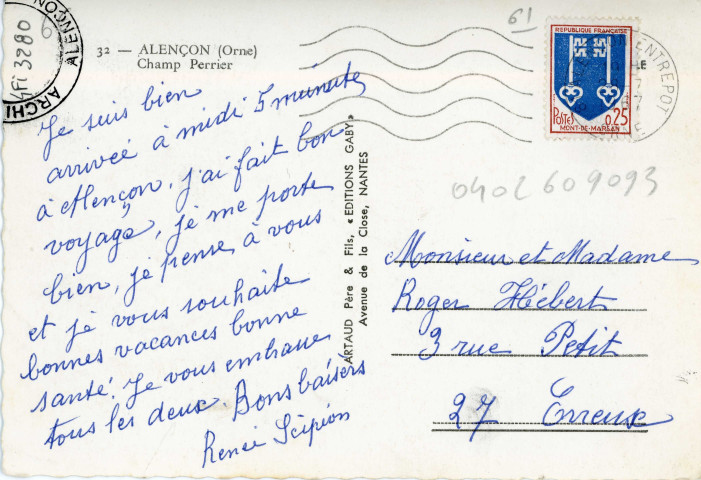 32 — ALENÇON (Orne)
Champ Perrier
Je suis bien
arrivée à midi 5 minutes
à Alençon, j'ai fait bon
voyage, je me porte
bien, je pense à vous
et je vous souhaite
bonnes vacances bonne
santé. Je vous embrasse
tous les deux. Bons baisers
Renée Scipion
ARTAUD Père & Fils, « EDITIONS GABY »
Avenue de la Close, NANTES
61
REPUBLIQUE FRANÇAISE
POSTES 0,25
MONT-DE-MARSAN
ENTREPOT
0402609093
Monsieur et Madame
Roger Hébert
3 rue Petit
27 Evreux
ALENÇON
ARCHI
4Fi 3280
6